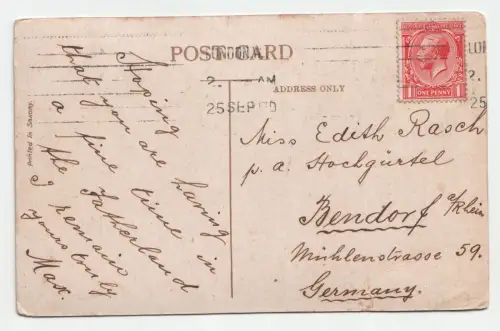 POST CARD
LONDON.
2. AM
25 SEP 20
LON
2.
25
ADDRESS ONLY
ONE PENNY
1 1
Printed in Saxony.
Hoping
that you are having
a fine time in
the Fatherland
I remain
yours truly
Max.
Miss Edith Rasch
p. a. Hochgürtel
Bendorf a/Rhein
Mühlenstrasse 59.
Germany.